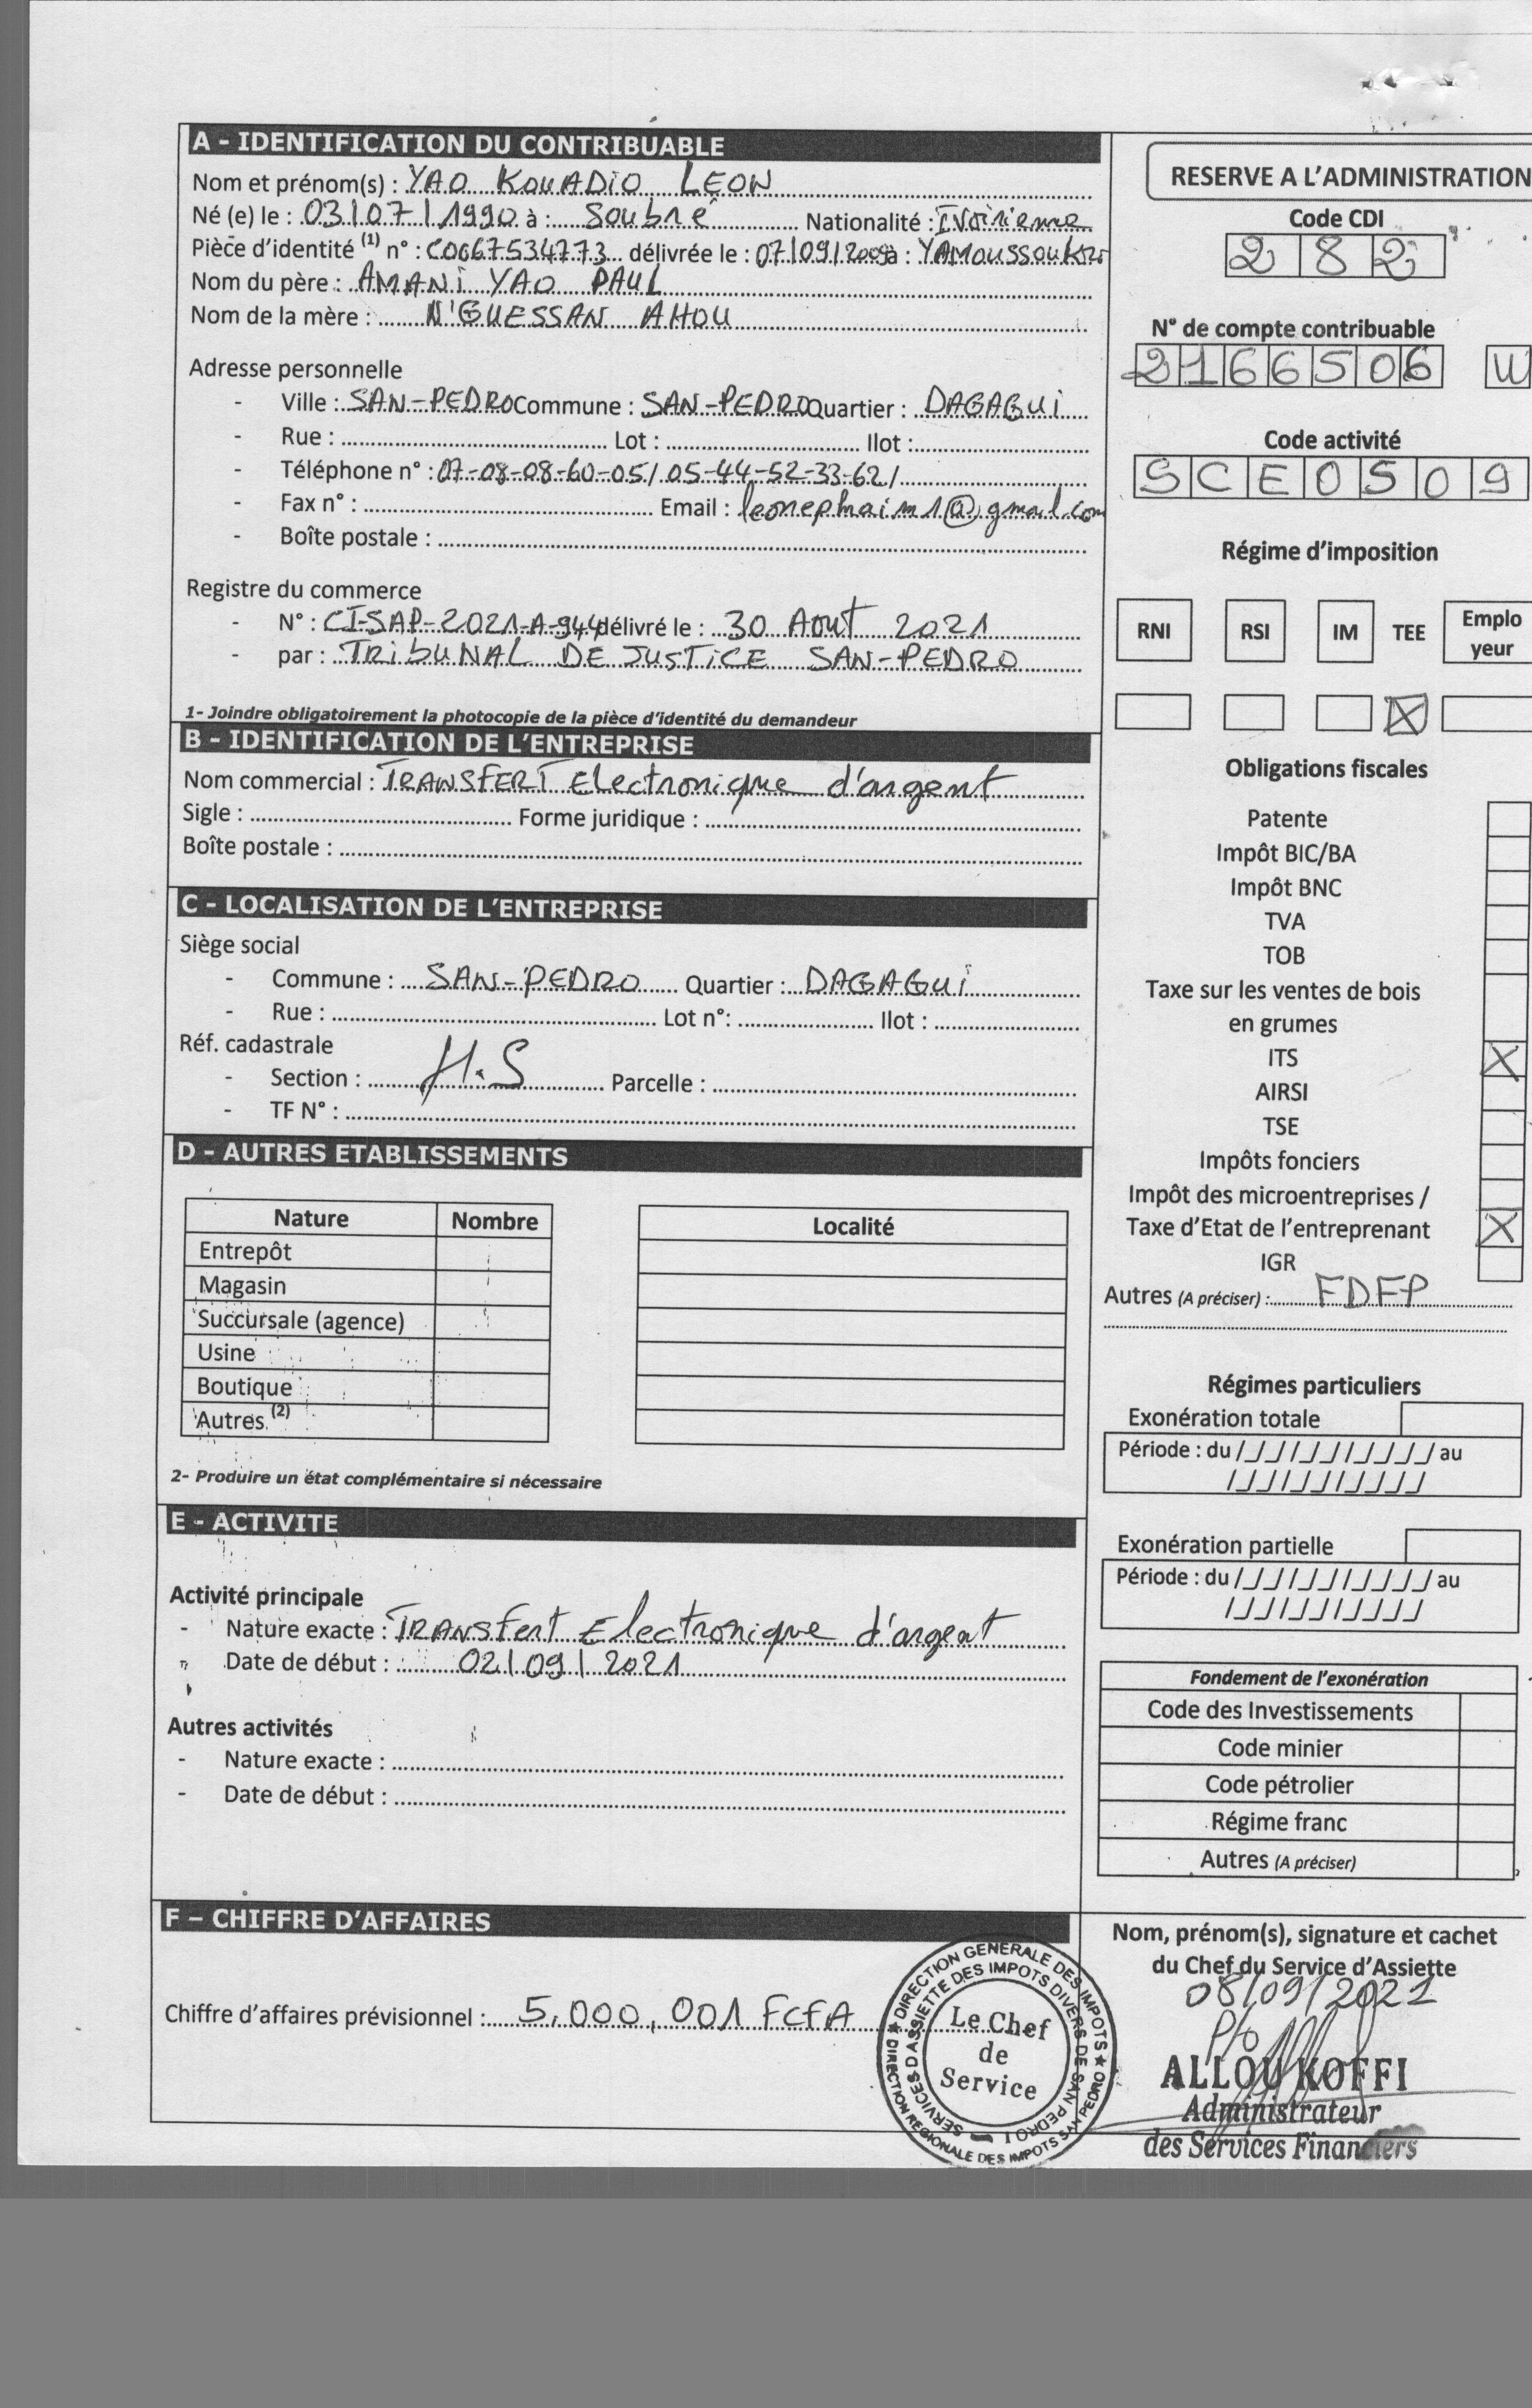 A - IDENTIFICATION DU CONTRIBUABLE
Nom et prénom(s) : YAO KOUADIO LEON
Né (e) le : 03/07/1990 à : Soubré Nationalité : Ivoirienne
Pièce d'identité (1) n° : C0067534773 délivrée le : 07/09/2009 à : YAMOUSSOUKRO
Nom du père : AMANI YAO PAUL
Nom de la mère : N'GUESSAN AHOU
Adresse personnelle
- Ville : SAN-PEDRO Commune : SAN-PEDRO Quartier : DAGAGUI
- Rue : Lot : Ilot :
- Téléphone n° : 07-08-08-60-05/ 05-44-52-33-62/
- Fax n° : Email : leonephraim1@gmail.com
- Boîte postale :
Registre du commerce
- N° : CI-SAP-2021-A-944 délivré le : 30 Août 2021
- par : TRIBUNAL DE JUSTICE SAN-PEDRO
1- Joindre obligatoirement la photocopie de la pièce d'identité du demandeur
B - IDENTIFICATION DE L'ENTREPRISE
Nom commercial : TRANSFERT Electronique d'argent
Sigle : Forme juridique :
Boîte postale :
C - LOCALISATION DE L'ENTREPRISE
Siège social
- Commune : SAN-PEDRO Quartier : DAGAGUI
- Rue : Lot n°: Ilot :
Réf. cadastrale
- Section : H.S Parcelle :
- TF N° :
D - AUTRES ETABLISSEMENTS
Nature Nombre Localité
Entrepôt
Magasin
Succursale (agence)
Usine
Boutique
Autres (2)
2- Produire un état complémentaire si nécessaire
E - ACTIVITE
Activité principale
- Nature exacte : TRANSfert Electronique d'argent
- Date de début : 02/09/2021
Autres activités
- Nature exacte :
- Date de début :
F – CHIFFRE D'AFFAIRES
Chiffre d'affaires prévisionnel : 5.000,001 FCFA
RESERVE A L'ADMINISTRATION
Code CDI
282
N° de compte contribuable
2166506 W
Code activité
SCE0509
Régime d'imposition
RNI RSI IM TEE Emplo
yeur
Obligations fiscales
Patente
Impôt BIC/BA
Impôt BNC
TVA
TOB
Taxe sur les ventes de bois
en grumes
ITS
AIRSI
TSE
Impôts fonciers
Impôt des microentreprises /
Taxe d'Etat de l'entreprenant
IGR
Autres (A préciser) : FDFP
Régimes particuliers
Exonération totale
Période : du /_/_/_/_/_/_/_/_/ au
/_/_/_/_/_/_/_/_/
Exonération partielle
Période : du /_/_/_/_/_/_/_/_/ au
/_/_/_/_/_/_/_/_/
Fondement de l'exonération
Code des Investissements
Code minier
Code pétrolier
Régime franc
Autres (A préciser)
Nom, prénom(s), signature et cachet
du Chef du Service d'Assiette
08/09/2021
P/o
ALLOU KOFFI
Administrateur
des Services Financiers
DIRECTION GENERALE DES IMPOTS
DIRECTION REGIONALE DES IMPOTS SAN PEDRO
SERVICES D'ASSIETTE DES IMPOTS DIVERS DE SAN PEDRO I
Le Chef
de
Service